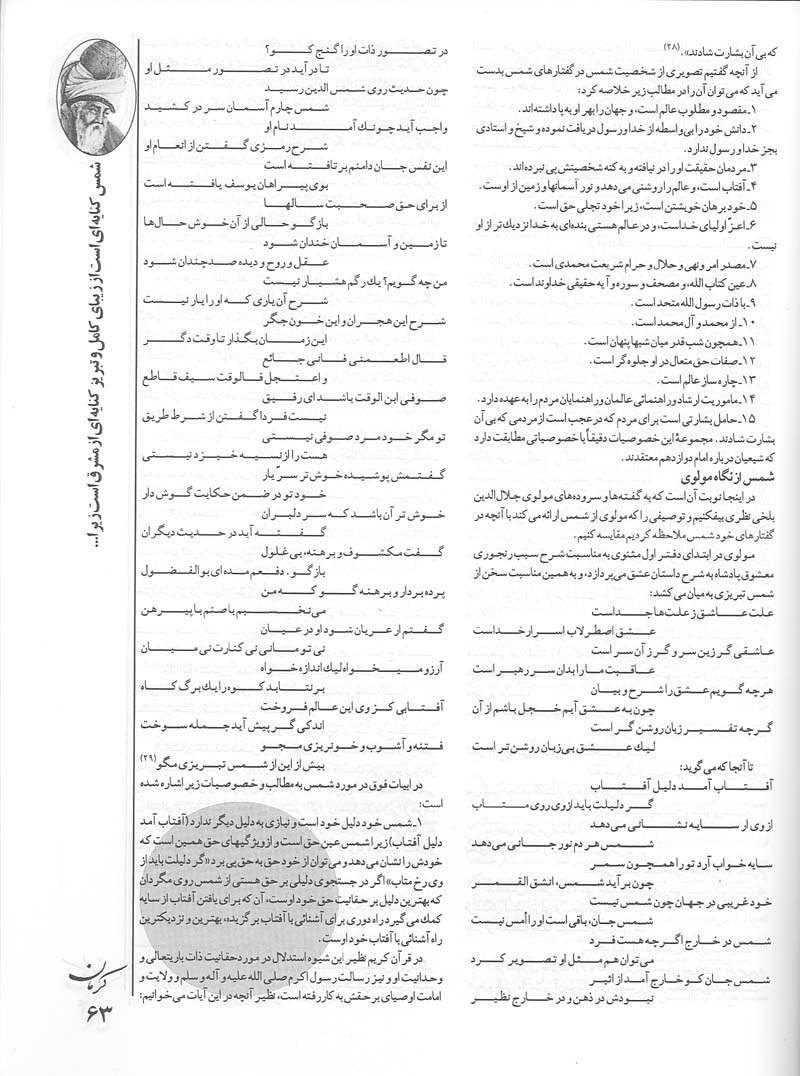 که بی آن بشارت شادند». (۲۸)
از آنچه گفتیم تصویری از شخصیت شمس در گفتارهای شمس بدست
می آید که می توان آن را در مطالب زیر خلاصه کرد:
۱ـ مقصود و مطلوب عالم است، و جهان را بهر او به پا داشته اند.
۲ـ دانش خود را بی واسطه از خدا و رسول دریافت نموده و شیخ و استادی
بجز خدا و رسول ندارد.
۳ـ مردمان حقیقت او را در نیافته و به کنه شخصیتش پی نبرده اند.
۴ـ آفتاب است، و عالم را روشنی می دهد و نور آسمانها و زمین از اوست.
۵ـ خود برهان خویشتن است، زیرا خود تجلی حق است.
۶ـ اعزّ اولیای خداست، و در عالم هستی بنده ای به خدا نزدیک تر از او
نیست.
۷ـ مصدر امر و نهی و حلال و حرام شریعت محمدی است.
۸ـ عین کتاب الله، و مصحف و سوره و آیه حقیقی خداوند است.
۹ـ با ذات رسول الله متحد است.
۱۰ـ از محمد و آل محمد است.
۱۱ـ همچون شب قدر میان شبها پنهان است.
۱۲ـ صفات حق متعال در او جلوه گر است.
۱۳ـ چاره ساز عالم است.
۱۴ـ ماموریت ارشاد و راهنمائی عالمان و راهنمایان مردم را به عهده دارد.
۱۵ـ حامل بشارتی است برای مردم که در عجب است از مردمی که بی آن
بشارت شادند. مجموعهٔ این خصوصیات دقیقاً با خصوصیاتی مطابقت دارد
که شیعیان درباره امام دوازدهم معتقدند.
شمس از نگاه مولوی
در اینجا نوبت آن است که به گفته ها و سروده های مولوی جلال الدین
بلخی نظری بیفکنیم و توصیفی را که مولوی از شمس ارائه می کند با آنچه در
گفتارهای خود شمس ملاحظه کردیم مقایسه کنیم.
مولوی در ابتدای دفتر اول مثنوی به مناسبت شرح سبب رنجوری
معشوق پادشاه به شرح داستان عشق می پردازد، و به همین مناسبت سخن از
شمس تبریزی به میان می کشد:
علت عاشق ز علت ها جداست
عشق اصطرلاب اسرار خداست
عاشقی گر زین سر و گر زآن سر است
عاقبت ما را بدان سر رهبر است
هرچه گویم عشق را شرح و بیان
چون به عشق آیم خجل باشم از آن
گرچه تفسیر زبان روشن گر است
لیک عشق بی زبان روشن تر است
تا آنجا که می گوید:
آفتاب آمد دلیل آفتاب
گر دلیلت باید از وی روی متاب
از وی ار سایه نشانی می دهد
شمس هر دم نور جانی می دهد
سایه خواب آرد تو را همچون سمر
چون برآید شمس، انشق القمر
خود غریبی در جهان چون شمس نیست
شمس جان، باقی است او را أمس نیست
شمس در خارج اگرچه هست فرد
می توان هم مثل او تصویر کرد
شمس جان کو خارج آمد از اثیر
نبودش در ذهن و در خارج نظیر
در تصور ذات او را گنج کو؟
تا درآید در تصور مثل او
چون حدیث روی شمس الدین رسید
شمس چارم آسمان سر در کشید
واجب آید چونک آمد نام او
شرح رمزی گفتن از انعام او
این نفس جان دامنم برتافته است
بوی پیراهان یوسف یافته است
از برای حق صحبت سالها
بازگو حالی از آن خوش حال ها
تا زمین و آسمان خندان شود
عقل و روح و دیده صد چندان شود
من چه گویم؟ یک رگم هشیار نیست
شرح آن یاری که او را یار نیست
شرح این هجران و این خون جگر
این زمان بگذار تا وقت دگر
قال اطعمنی فانی جائع
واعتجل فالوقت سیف قاطع
صوفی ابن الوقت باشد ای رفیق
نیست فردا گفتن از شرط طریق
تو مگر خود مرد صوفی نیستی
هست را از نسیه خیزد نیستی
گفتمش پوشیده خوش تر سرّ یار
خود تو در ضمن حکایت گوش دار
خوش تر آن باشد که سر دلبران
گفته آید در حدیث دیگران
گفت مکشوف و برهنه، بی غلول
بازگو. دفعم مده ای بوالفضول
پرده بردار و برهنه گو که من
می نخسبم با صنم با پیرهن
گفتم ار عریان شود او در عیان
نی تو مانی نی کنارت نی میان
آرزو میخواه لیک اندازه خواه
برنتابد کوه را یک برگ کاه
آفتابی کز وی این عالم فروخت
اندکی گر پیش آید جمله سوخت
فتنه و آشوب و خونریزی مجو
بیش از این از شمس تبریزی مگو (۲۹)
در ابیات فوق در مورد شمس به مطالب و خصوصیات زیر اشاره شده
است:
۱ـ شمس خود دلیل خود است و نیازی به دلیل دیگر ندارد (آفتاب آمد
دلیل آفتاب) زیرا شمس عین حق است و از ویژگیهای حق همین است که
خودش را نشان می دهد و می توان از خود حق به حق پی برد «گر دلیلت باید از
وی رخ متاب» اگر در جستجوی دلیلی بر حق هستی از شمس روی مگردان
که بهترین دلیل بر حقانیت حق خود اوست، آن که برای یافتن آفتاب از سایه
کمک می گیرد راه دوری برای آشنائی با آفتاب برگزیده، بهترین و نزدیکترین
راه آشنائی با آفتاب خود اوست.
در قرآن کریم نظیر این شیوه استدلال در مورد حقانیت ذات باریتعالی و
وحدانیت او و نیز رسالت رسول اکرم صلی الله علیه و آله و سلم و ولایت و
امامت اوصیای بر حقش به کار رفته است، نظیر آنچه در این آیات می خوانیم:
شمس کنایه ای است از زیبای کامل و تبریز کنایه ای از مشرق است زیرا...
کرمان
۶۳